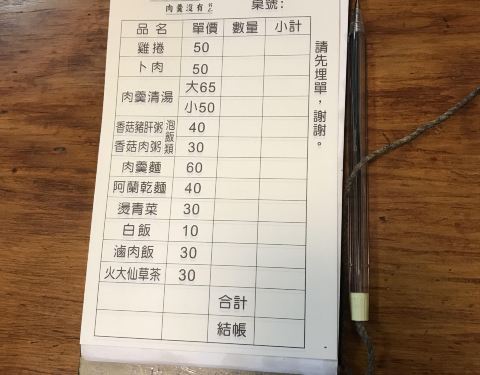 肉羹沒有
桌號：
品名 單價 數量 小計
雞捲 50
卜肉 50
肉羹清湯 大65
小50
香菇豬肝粥 泡飯類 40
香菇肉粥 30
肉羹麵 60
阿蘭乾麵 40
燙青菜 30
白飯 10
滷肉飯 30
火大仙草茶 30
合計
結帳
請先埋單，謝謝。